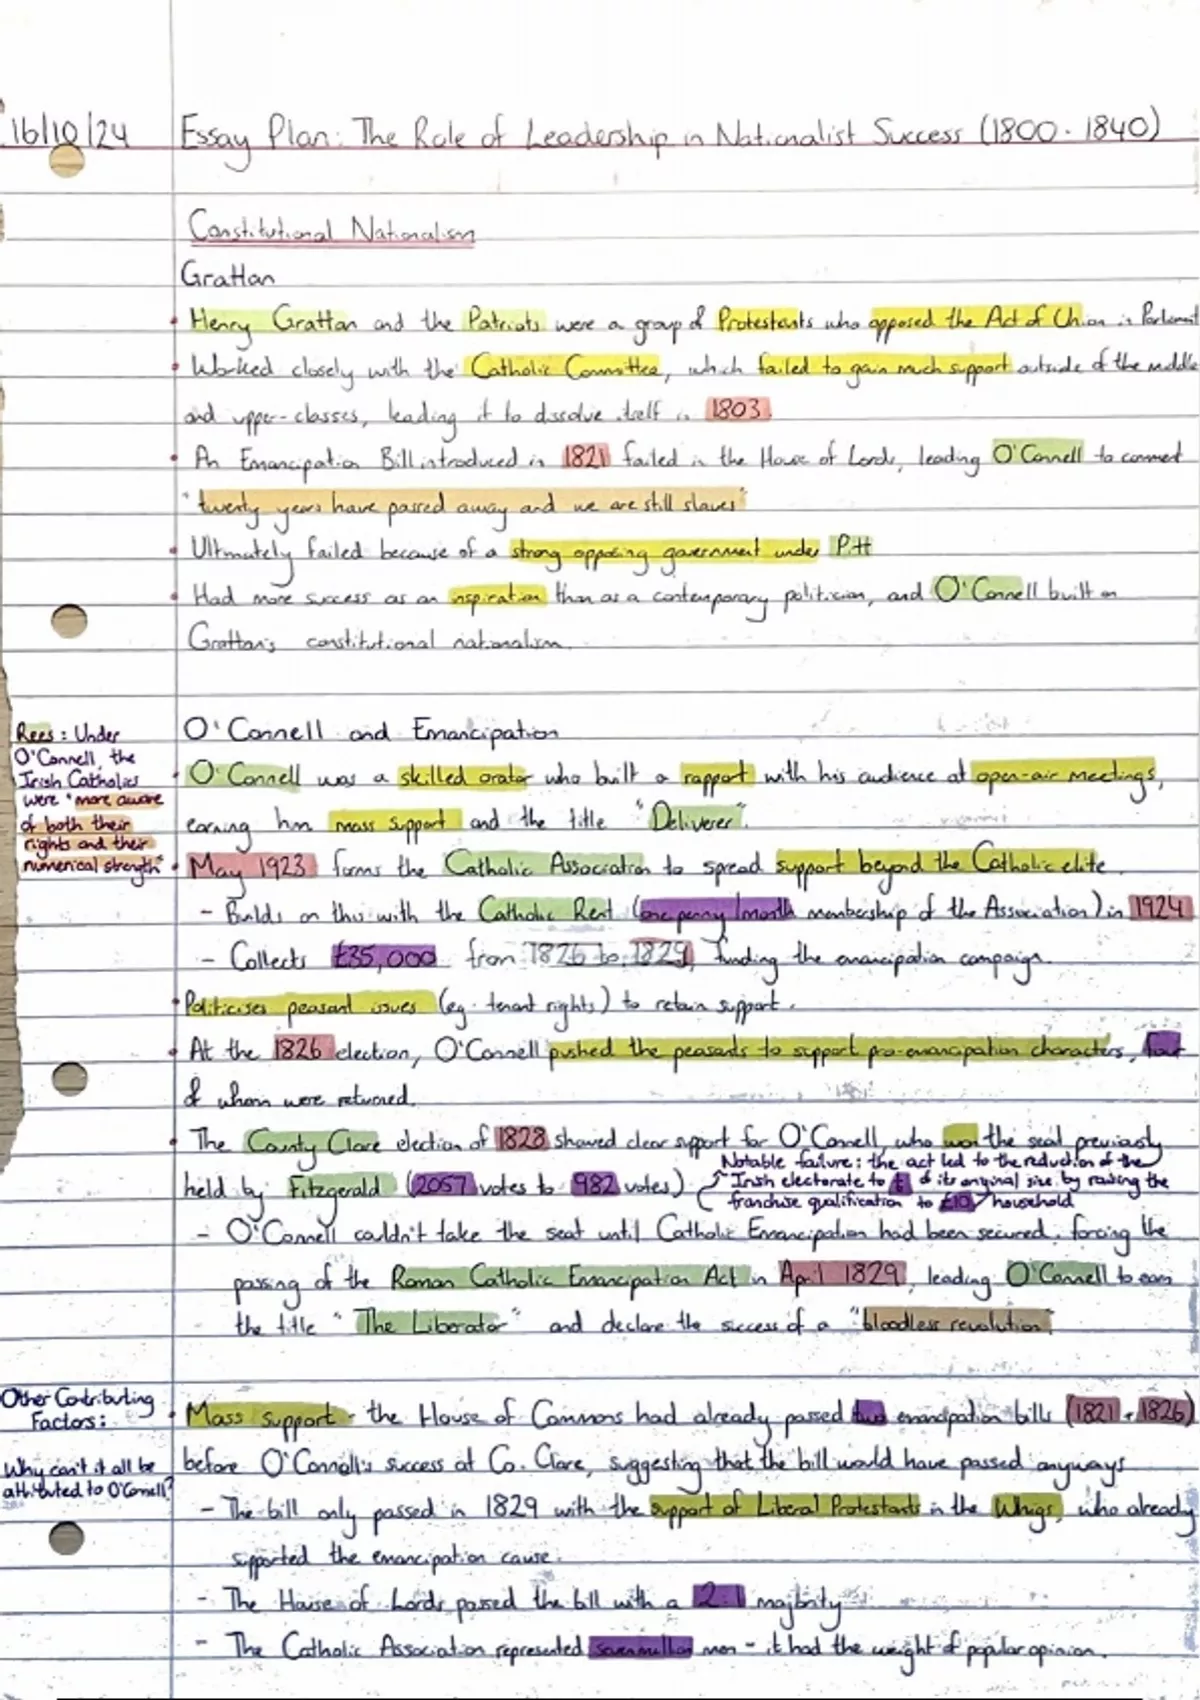 16/10/24
Essay Plan: The Role of Leadership in Nationalist Success (1800-1840)
Constitutional Nationalism
Grattan
• Henry Grattan and the Patriots were a group of Protestants who opposed the Act of Union in Parliament
• Worked closely with the Catholic Committee, which failed to gain much support outside of the middle
and upper-classes, leading it to dissolve itself in 1803.
• An Emancipation Bill introduced in 1821 failed in the House of Lords, leading O'Connell to comment
"twenty years have passed away and we are still slaves"
• Ultimately failed because of a strong opposing government under Pitt
• Had more success as an inspiration than as a contemporary politician, and O'Connell built on
Grattan's constitutional nationalism.
Rees: Under
O'Connell, the
Irish Catholics
were "more aware
of both their
rights and their
numerical strength"
O'Connell and Emancipation
• O'Connell was a skilled orator who built a rapport with his audience at open-air meetings,
earning him mass support and the title "Deliverer".
• May 1923 forms the Catholic Association to spread support beyond the Catholic elite.
- Builds on this with the Catholic Rent (one penny/month membership of the Association) in 1924
- Collects £35,000 from 1826 to 1829, funding the emancipation campaign.
• Politicises peasant issues (eg. tenant rights) to retain support.
• At the 1826 election, O'Connell pushed the peasants to support pro-emancipation characters, four
of whom were returned.
• The County Clare election of 1828 showed clear support for O'Connell, who won the seat previously
held by Fitzgerald (2057 votes to 982 votes)
Notable failure: the act led to the reduction of the
Irish electorate to of its original size by raising the
franchise qualification to £10/household
- O'Connell couldn't take the seat until Catholic Emancipation had been secured, forcing the
passing of the Roman Catholic Emancipation Act in April 1829, leading O'Connell to earn
the title "The Liberator" and declare the success of a "bloodless revolution".
Other Contributing
Factors:
Why can't it all be
attributed to O'Connell?
• Mass support - the House of Commons had already passed two emancipation bills (1821 + 1825)
before O'Connell's success at Co. Clare, suggesting that the bill would have passed anyways
- The bill only passed in 1829 with the support of Liberal Protestants in the Whigs, who already
supported the emancipation cause.
- The House of Lords passed the bill with a 2:1 majority
- The Catholic Association represented seven million men - it had the weight of popular opinion.